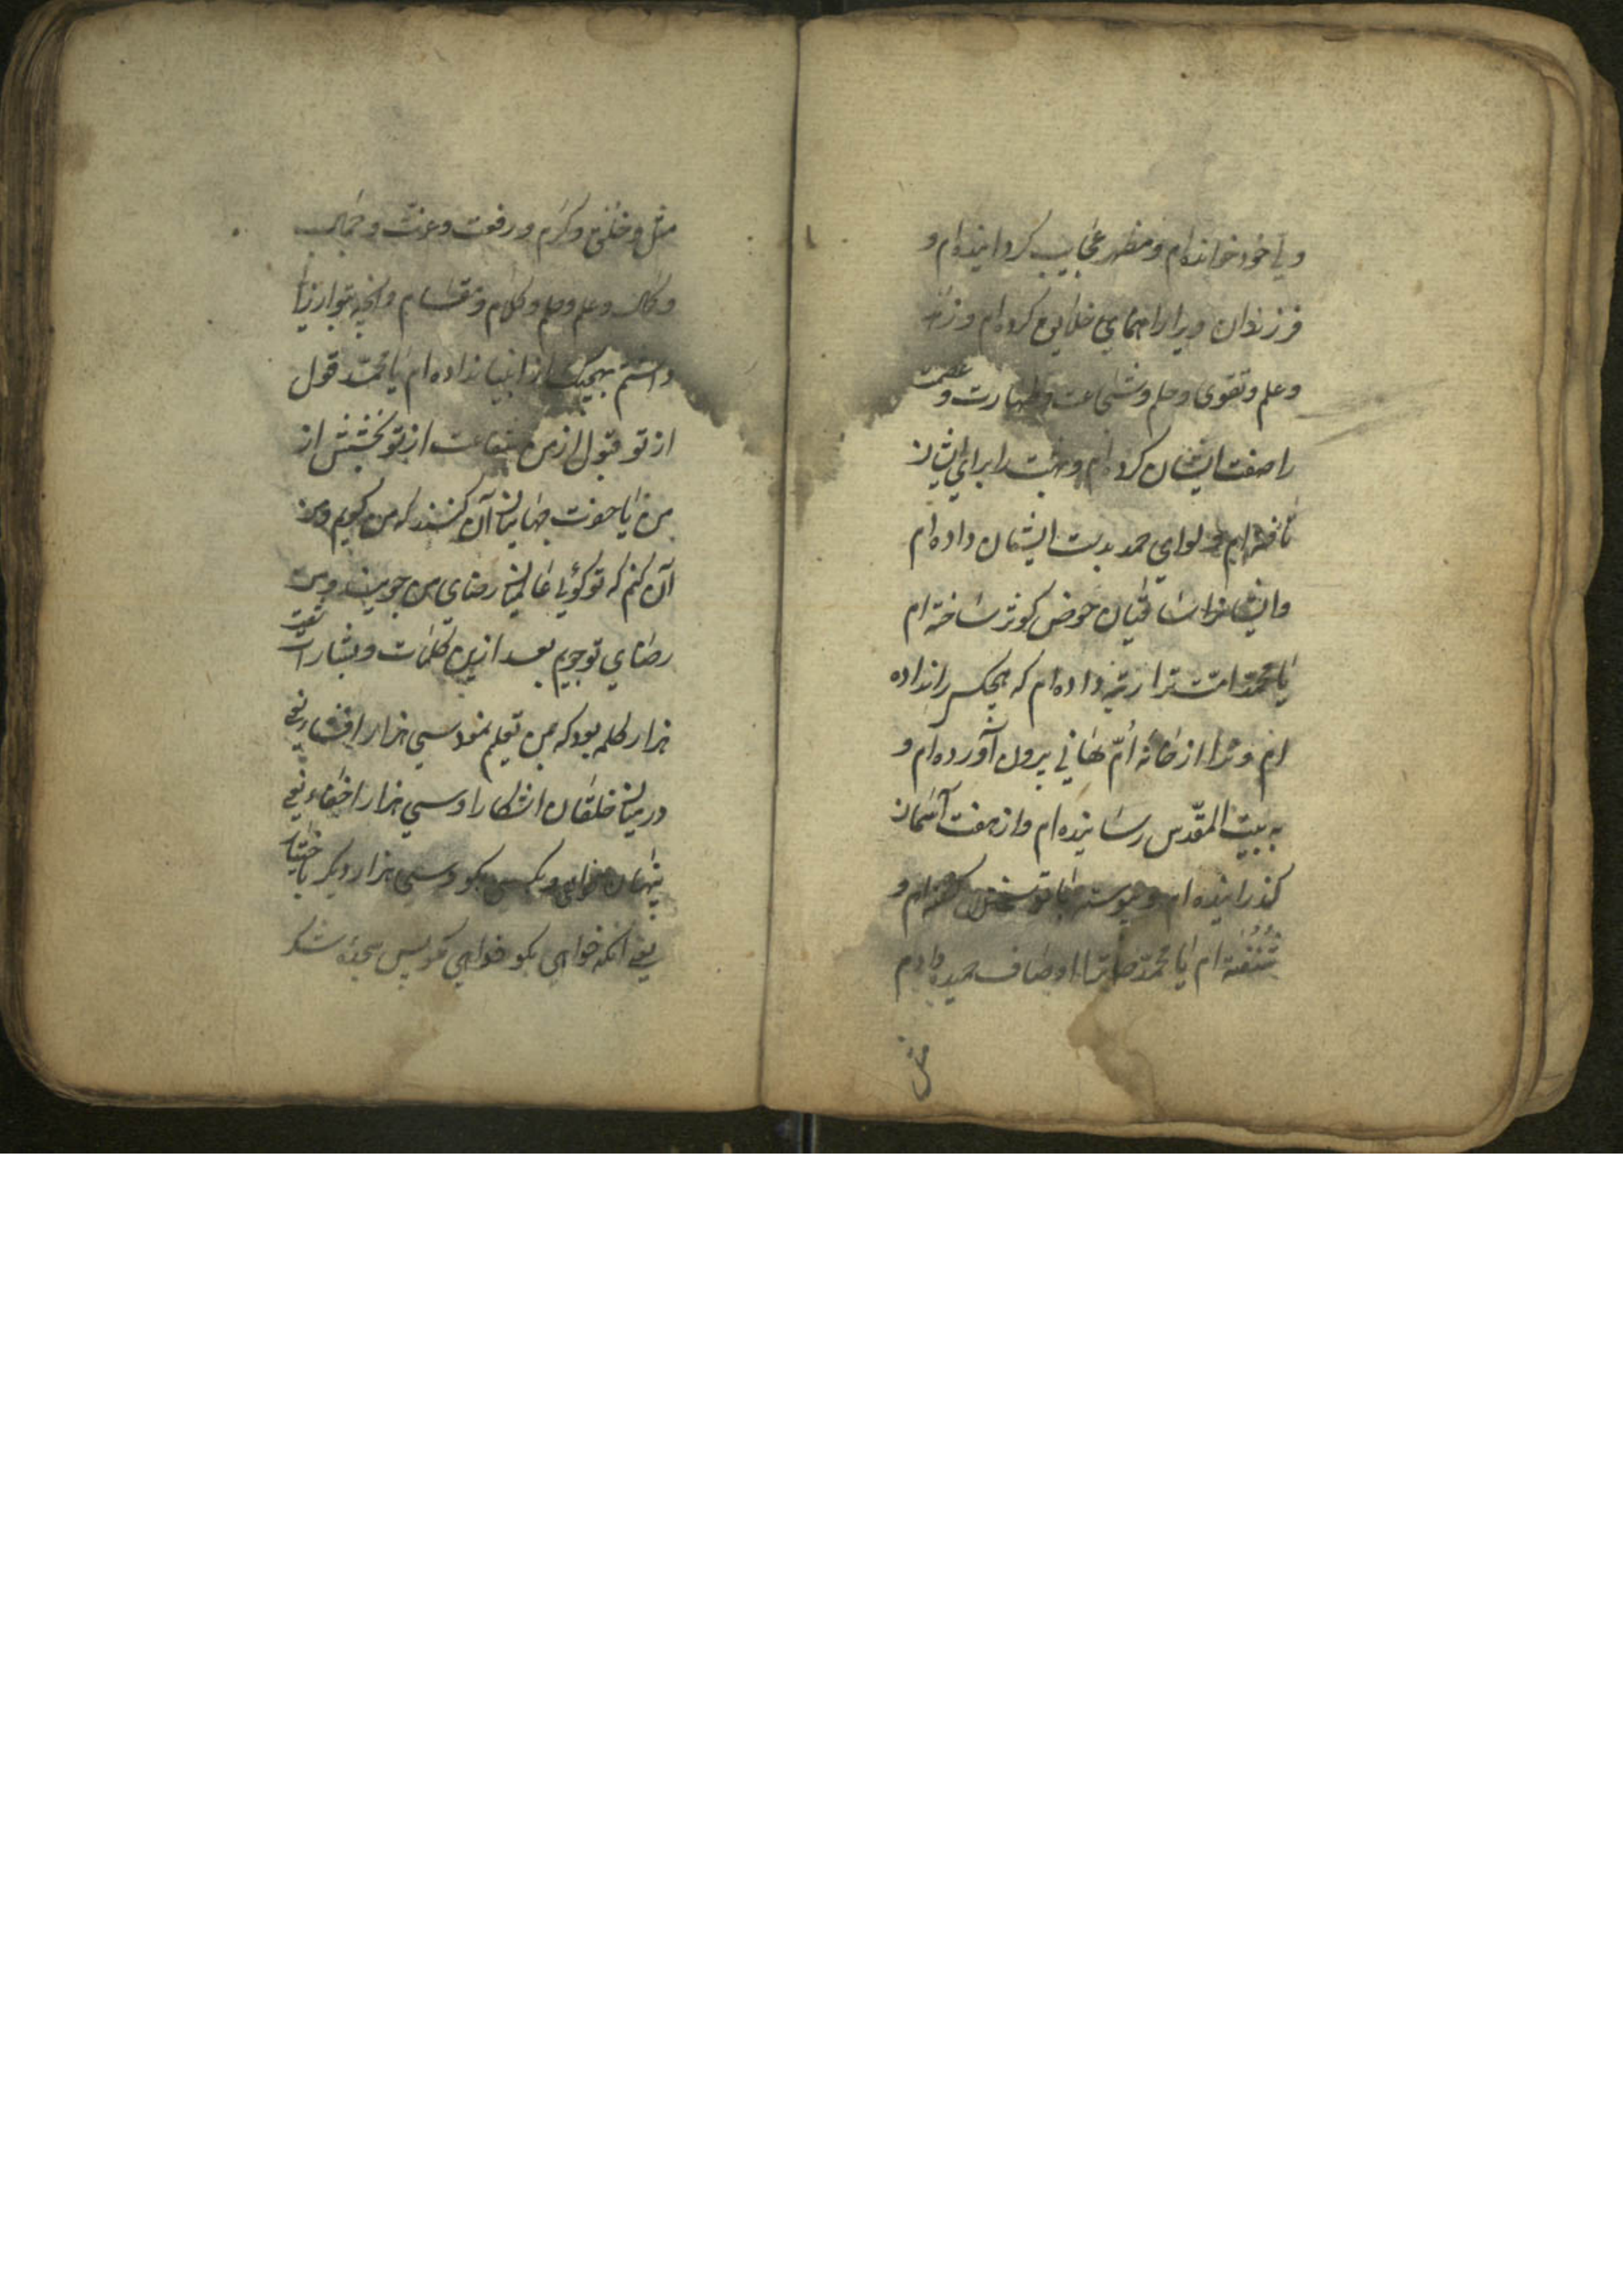 ویا خود خوانده ام و مظهر عجایب گردانیده ام و
فرزندان ویرا راهنمای خلایق کرده ام و زهد
و علم و تقوی و حلم و شجاعت و طهارت و عصمت
را صفت ایشان کرده ام و جنت را برای ایشان
ام و لوای حمد بدست ایشان داده ام
و ایشانرا ساقیان حوض کوثر ساخته ام
یا محمد امت ترا رتبه داده ام که هیچکس را نداده
ام و ترا از خانه اُمّ هانی بیرون آورده ام و
به بیت المقدّس رسانیده ام و از هفت آسمان
گذرانیده ام و بیواسطه با تو سخن گفته ام و
شنفته ام یا محمّد ترا اوصاف حمیده دادم
مثل
مثل و خلق و کرم و رفعت و عزت و جمال
و کمال و علم و حلم و کلام و مقام و آنچه بتو ارزانی
داشتم بهیچیک از انبیا نداده ام یا محمّد قول
از تو قبول از من شفاعت از تو بخشش از
من یا جهانیان آن کنند که من گویم و من
آن کنم که تو گویی عالمیان رضای من جویند و من
رضای تو جویم بعد ازین کلمات و بشارات نود
هزار کلمه بود که بمن تعلیم نمود سی هزار افشاء یعنی
در میان خلقان آشکارا و سی هزار اخفاء یعنی
پنهان و بکسی مگو و سی هزار دیگر باختیار
یعنی آنکه خواهی بگو خواهی مگو پس سجده شکر